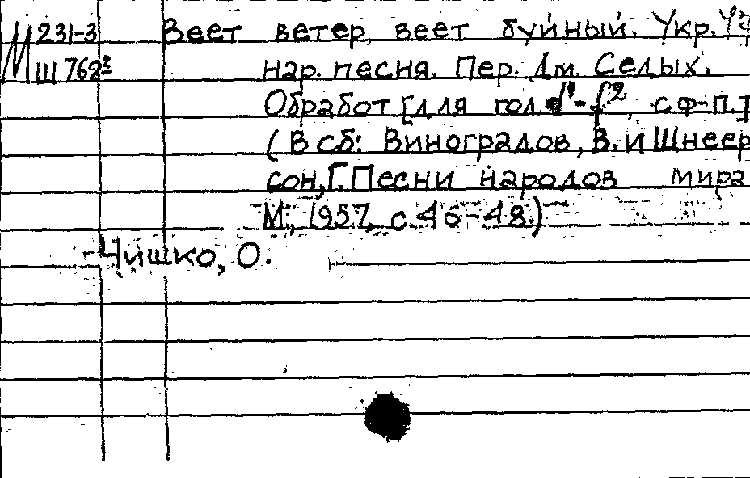 М 231-3 Веет ветер, веет буйный. Укр.
Ш 768² нар. песня. Пер. Дм. Седых.
Обработ [для гол d¹-f², с ф-п.]
(В сб: Виноградов, В. и Шнеер
сон, Г. Песни народов мира
М., 1957, с. 46-48.)
Чишко, О.